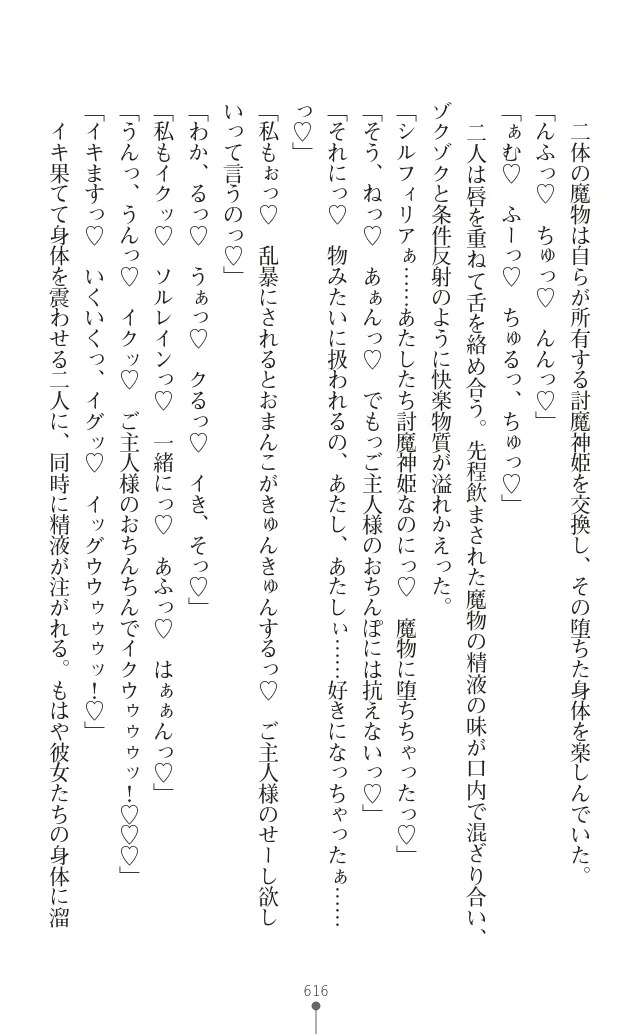 二体の魔物は自らが所有する討魔神姫を交換し、その堕ちた身体を楽しんでいた。
「んふっ♡　ちゅっ♡　んんっ♡」
「ぁむ♡　ふーっ♡　ちゅるっ、ちゅっ♡」
　二人は唇を重ねて舌を絡め合う。先程飲まされた魔物の精液の味が口内で混ざり合い、
ゾクゾクと条件反射のように快楽物質が溢れかえった。
「シルフィリアぁ……あたしたち討魔神姫なのにっ♡　魔物に堕ちちゃったっ♡」
「そう、ねっ♡　あぁんっ♡　でもっご主人様のおちんぽには抗えないっ♡」
「それにっ♡　物みたいに扱われるの、あたし、あたしぃ……好きになっちゃったぁ……
っ♡」
「私もぉっ♡　乱暴にされるとおまんこがきゅんきゅんするっ♡　ご主人様のせーし欲し
いって言うのっ♡」
「わか、るっ♡　うぁっ♡　クるっ♡　イき、そっ♡」
「私もイクッ♡　ソルレインっ♡　一緒にっ♡　あふっ♡　はぁぁんっ♡」
「うんっ、うんっ♡　イクッ♡　ご主人様のおちんちんでイクウゥゥゥッ！♡♡♡」
「イキますっ♡　いくいくっ、イグッ♡　イッグウウゥゥゥッ！♡」
　イキ果てて身体を震わせる二人に、同時に精液が注がれる。もはや彼女たちの身体に溜
616